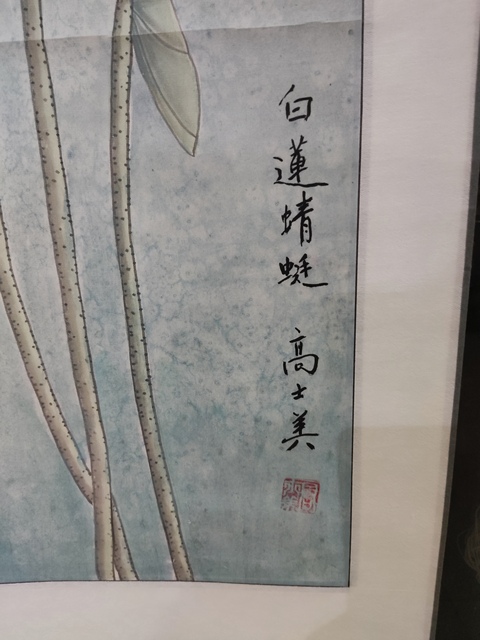 白蓮蜻蜓 高士美